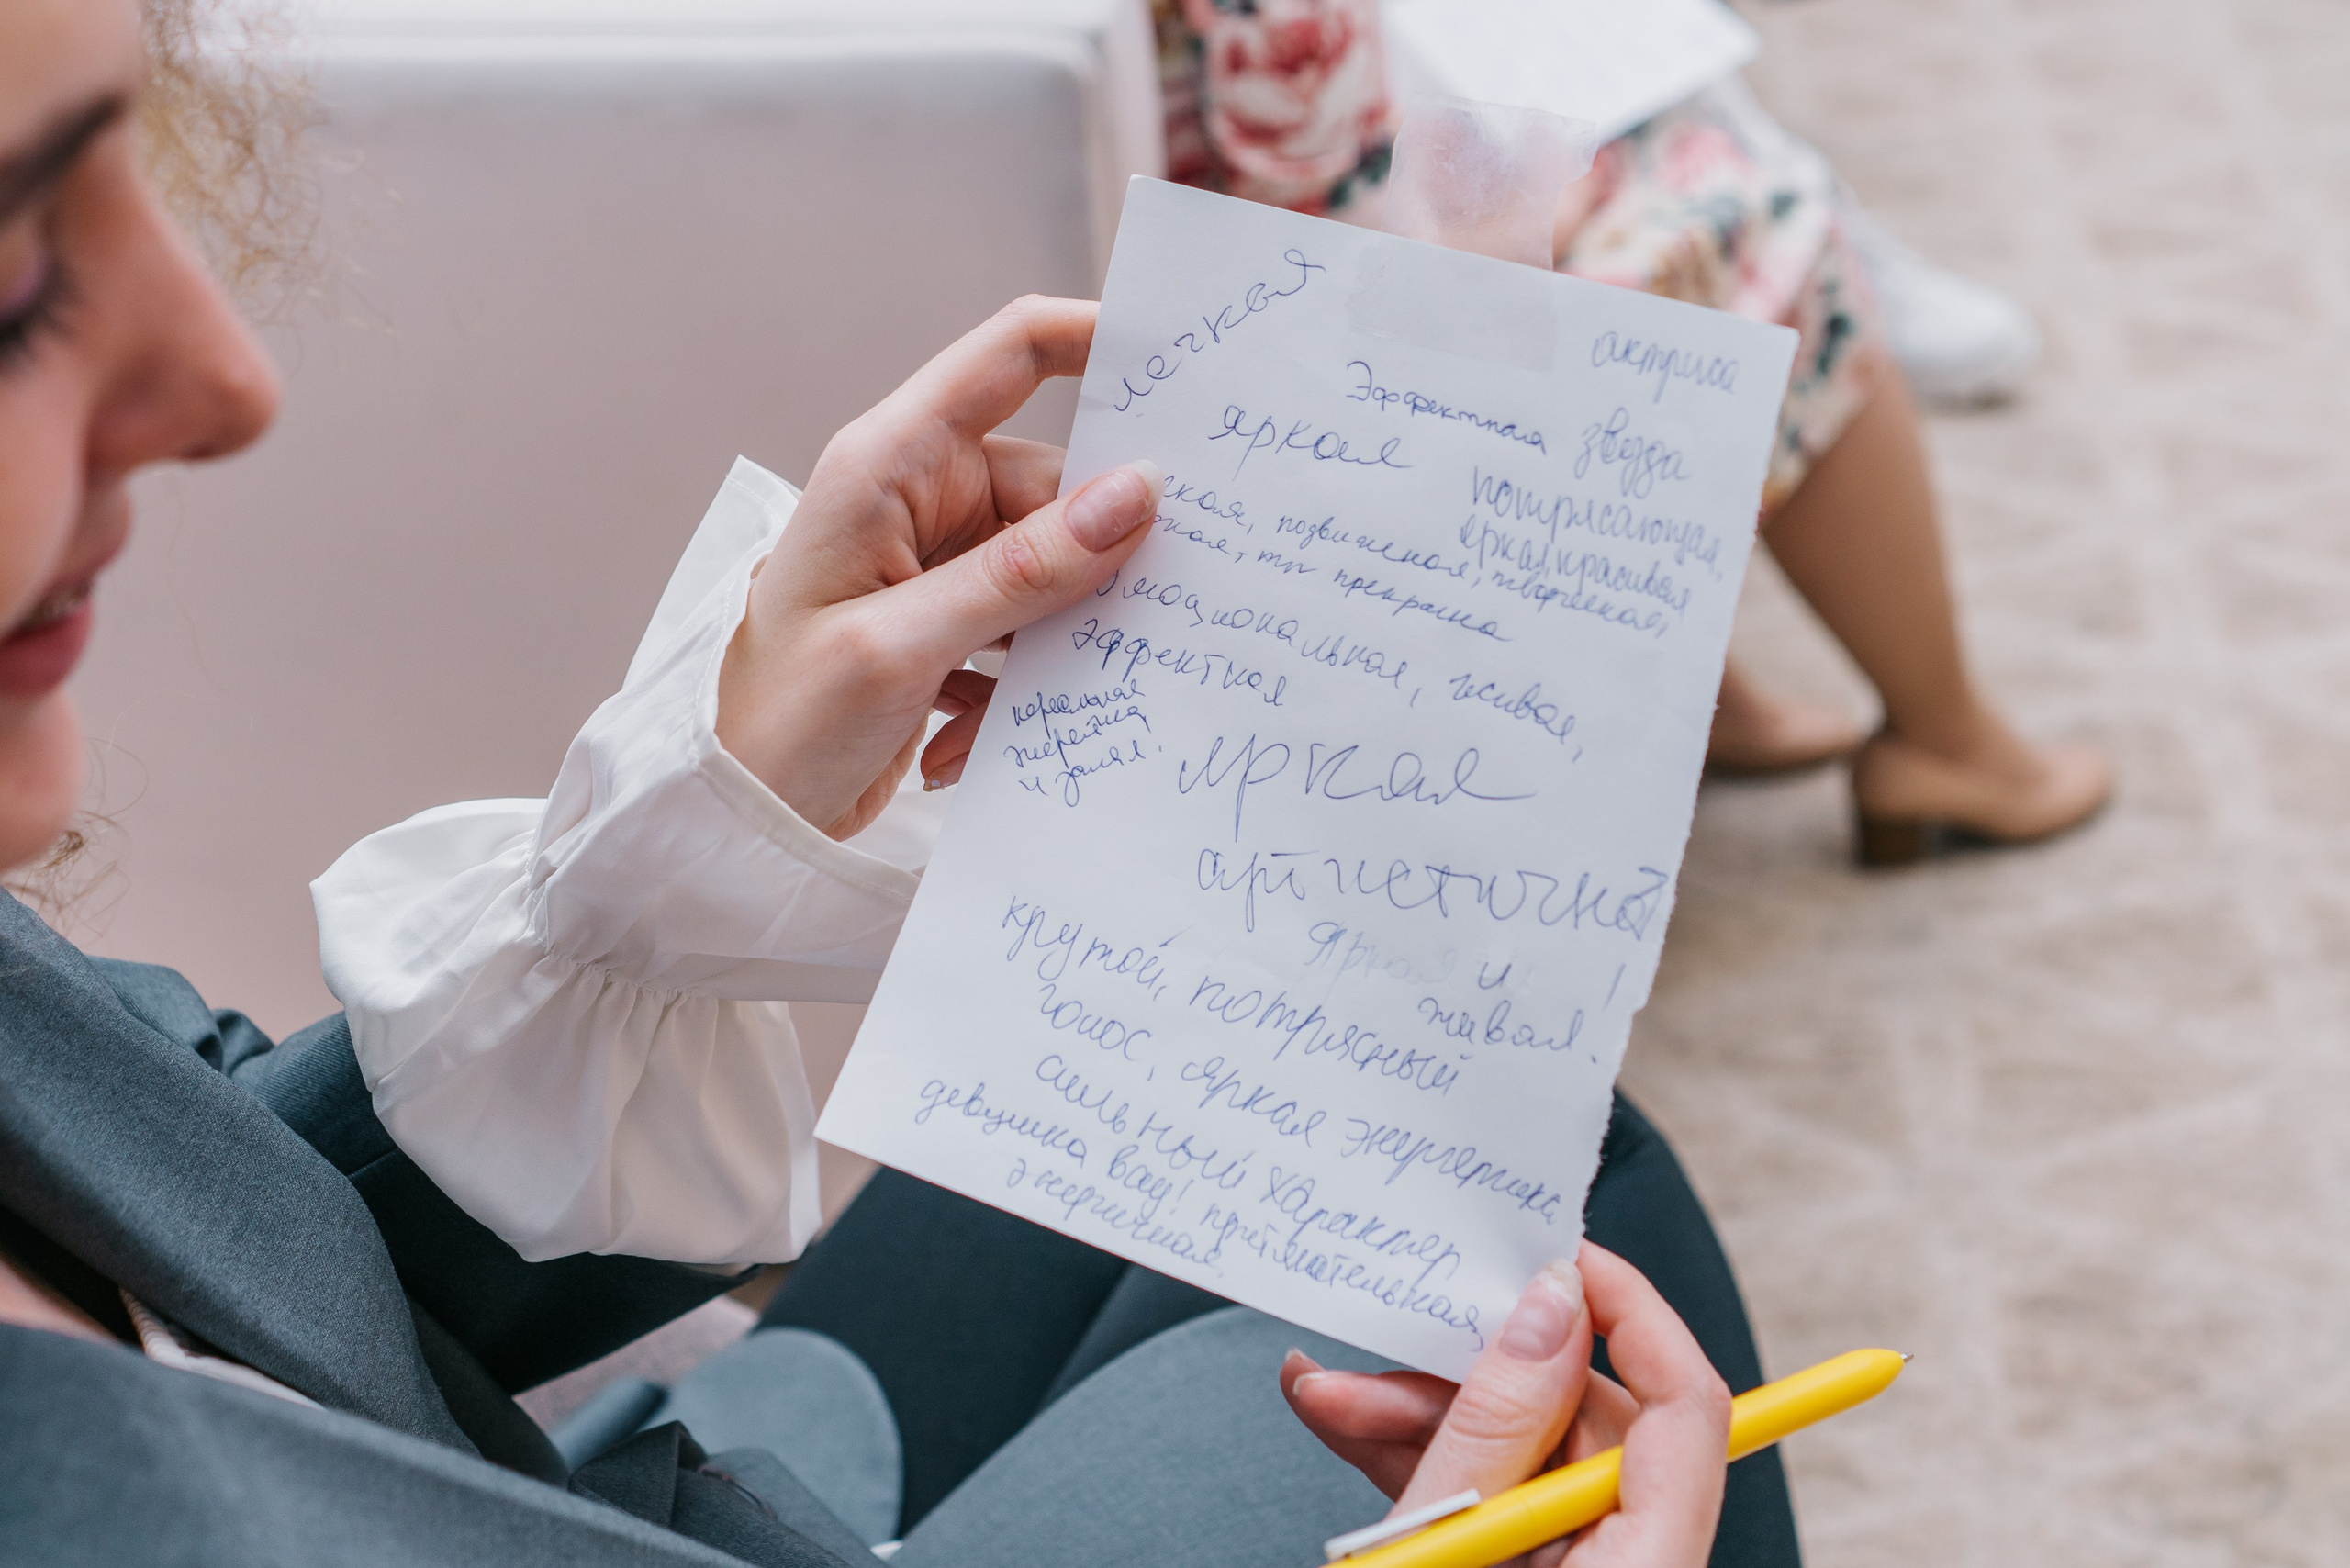 лёгкая
актриса
Эффектная
звезда
яркая
потрясающая,
яркая, красивая
подвижная, творческая,
ты прекрасна
эмоциональная, живая,
эффектная
яркая
артистична
Яркая и
живая!
крутой, потрясный
голос, яркая энергетика,
сильный характер
девушка вау! притягательная,
энергичная